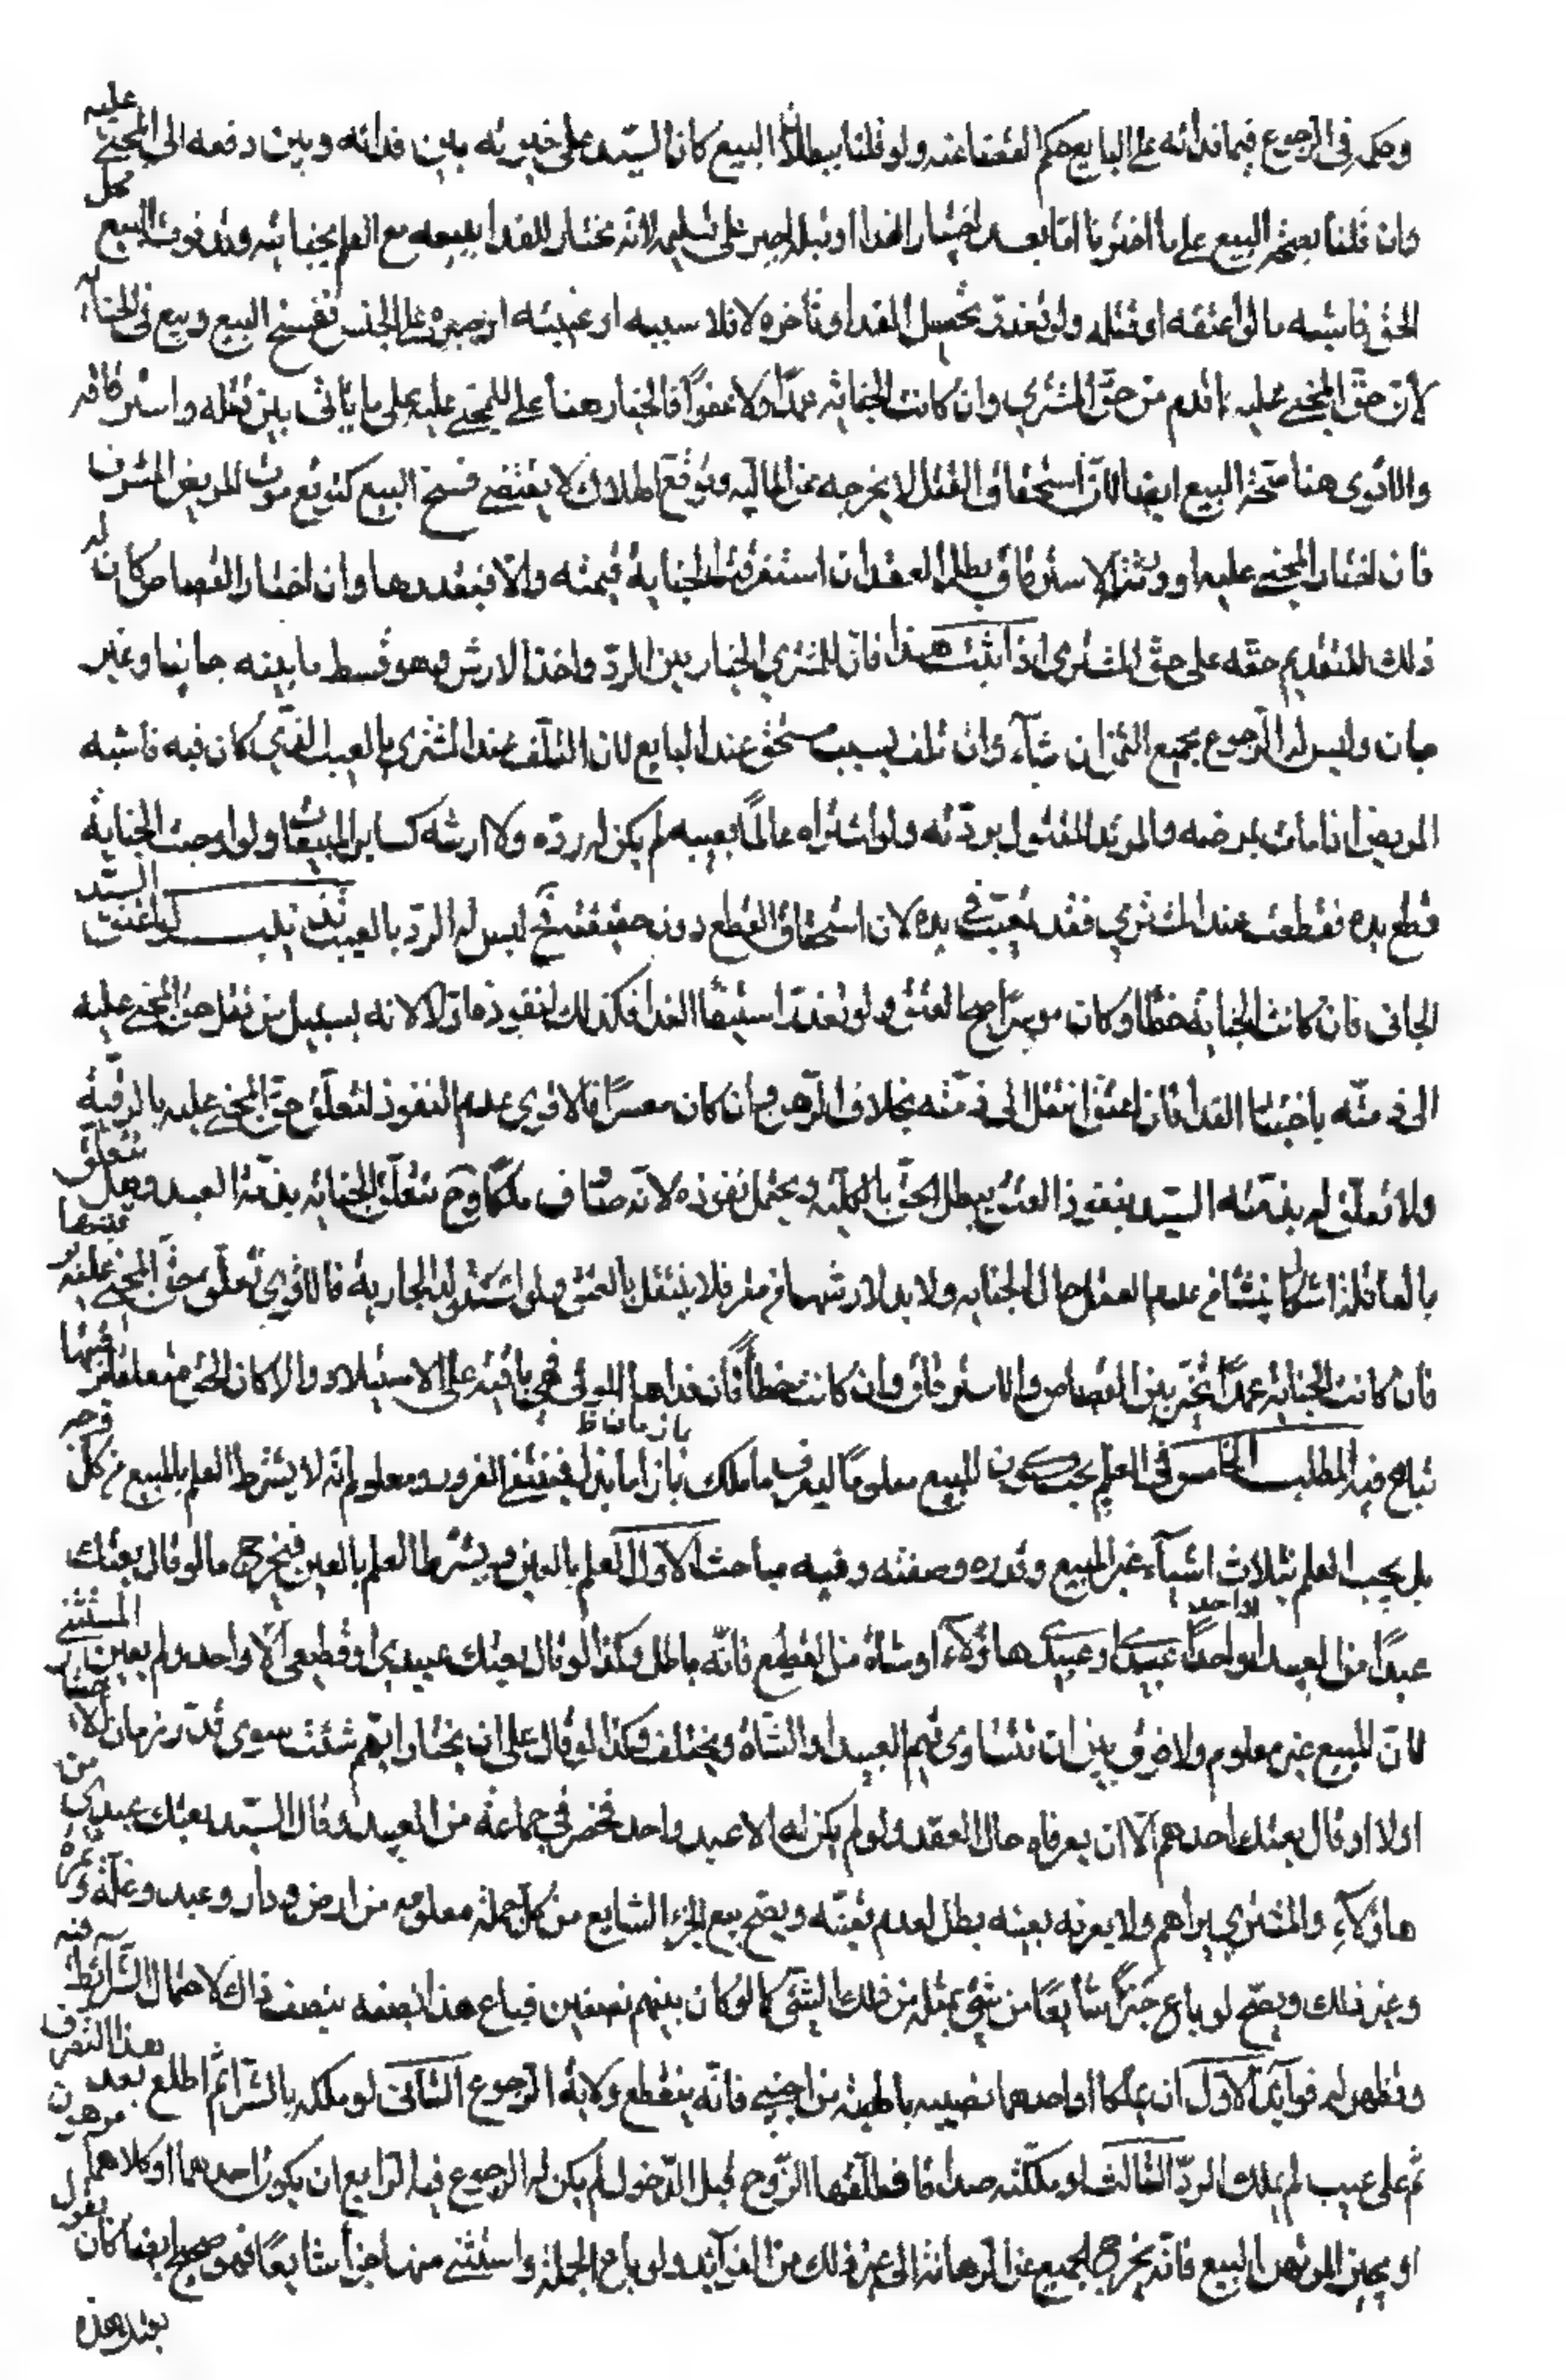 وحكمه في الرجوع فيما فداه به على البايع حكم القضا عنه ولو قلنا ببطلان البيع كان السيد على خيرته بين فدائه وبين دفعه الى المجني عليه
وان قلنا بصحة البيع على ما اخترنا اما بعد اختيار الفدا او قبله اجبر على تسليمه لانه مختار للفدا ببيعه مع العلم بجنايته وقد فوت البيع محل
الحق فاشبه ما لو اعتقه او قتله ولو تعذر تحصيل الفدا او تأخره لافلاسه او غيبته او صبره على الحبس فسخ البيع وبيع في الجناية
لان حق المجني عليه اقدم من حق المشتري وان كانت الجناية عمدا ولا عفوا فالخيار هنا للمجني عليه على ما يأتي بين قتله واسترقاقه
والاقوى هنا صحة البيع ايضا لان استحقاق القتل لا يخرجه عن المالية وتوقع الهلاك لا يقتضي فسخ البيع كتوقع موت المريض المشرف
فان اختار المجني عليه او ورثته الاسترقاق بطل العقد ان استغرقت الجناية قيمته والا فبقدرها وان اختار القصاص كان له
ذلك لتقديم حقه على حق المشتري اذا ثبت هذا فان للمشتري الخيار بين الرد واخذ الارش وهو قسط ما بينه جانيا وغير
جان وليس له الرجوع بجميع الثمن ان شاء وان تلف بسبب مستحق عند البايع لان التلف عند المشتري بالعيب الذي كان فيه فاشبه
المريض اذا مات بمرضه والمرتد المقتول بردته ولو اشتراه عالما بعيبه لم يكن له رده ولا ارشه كساير المبيعات ولو اوجبت الجناية
قطع يده فقطعت عند المشتري فقد تعيب في يده لان استحقاق القطع دون حقيقته فح ليس له الرد بالعيب تذنيب لو اعتق السيد
الجاني فان كانت الجناية خطأ وكان موسرا صح العتق ولو تعذر استيفاء الفدا فكذلك لنفوذه اولا لانه بسبيل من نقل حق المجني عليه
الى ذمته باختيار الفدا فان اعتق انتقل الى ذمته بخلاف الرهن وان كان معسرا فالاقوى عدم النفوذ لتعلق حق المجني عليه بالرقبة
ولا تعلق له بذمة السيد بنفوذ العتق يبطل الحق بالكلية ويحتمل نفوذه لانه صادف ملكا وح تتعلق الجناية بذمة العبد وهل تتعلق
بالعاقلة اشكال ينشأ من عدم العقل حال الجناية ولا بد لارشها من مقر فلا ينتقل بالعتق ولو استولد الجارية فالاقوى تعلق حق المجني عليه برقبتها
فان كانت الجناية عمدا تخير بين القصاص والاسترقاق وان كانت خطأ فان فداها المولى فهي باقية على الاستيلاد والا كان الحق متعلقا
تباع فيه المطلب الخامس في العلم يجب كون المبيع معلوما ليعرف ما ملك بازاء ما بذل فينتفي الغرر ومعلوم انه لا يشترط العلم بالمبيع من كل وجه
بازمان ظ
بل يجب العلم بثلاث اشياء عين المبيع وقدره وصفته وفيه مباحث الاول العلم بالعين ويشترط العلم بالعين فيخرج ما لو قال بعتك
عبدا من العبيد او احد عبيدي او عبيدي هاؤلاء او شاة من القطيع فانه باطل وكذا لو قال بعتك عبيدي او قطيعي الا واحدا ولم يعين المستثنى
لان المبيع غير معلوم ولا فرق بين ان تتساوى قيم العبيد او الشاة ويختلف وكذا لو قال على ان يختار ايهم شئت سوى قدر زمان الاختيار
اولا او قال بعتك احدهم الا ان يعرفاه حال العقد ولو لم يكن له الا عبد واحد فحضر في جماعة من العبيد وقال السيد بعتك عبدي من
هاؤلاء والمشتري يراهم ولا يعرفه بعينه بطل لعدم تعينه ويصح بيع الجزء الشايع من كل جملة معلومة من ارض ودار وعبد وغلة وثمرة
وغير ذلك ويصح لو باع جزءا شايعا من شئ بمثله من ذلك الشئ كما لو كان بينهم نصفين فباع هذا نصفه بنصف ذاك لاحتمال الشرائط فيه
وتظهر له فوايد الاول ان يملكا او احدهما نصيبه بالهبة من اجنبي فانه ينقطع ولاية الرجوع الثاني لو ملكه بالشراء ثم اطلع بعد هذا التصرف
ثم على عيب لم يملك الرد الثالث لو ملكته صداقا فطلقها الزوج قبل الدخول لم يكن له الرجوع فيه الرابع ان يكون احدهما او كلاهما مرهون
او يجيز المرتهن البيع فانه يخرج الجميع عن الرهانة الى غير ذلك من الفوايد ولو باع الجملة واستثنى منها جزءا شايعا فهو صحيح ايضا كان يقول
بعتك هذه